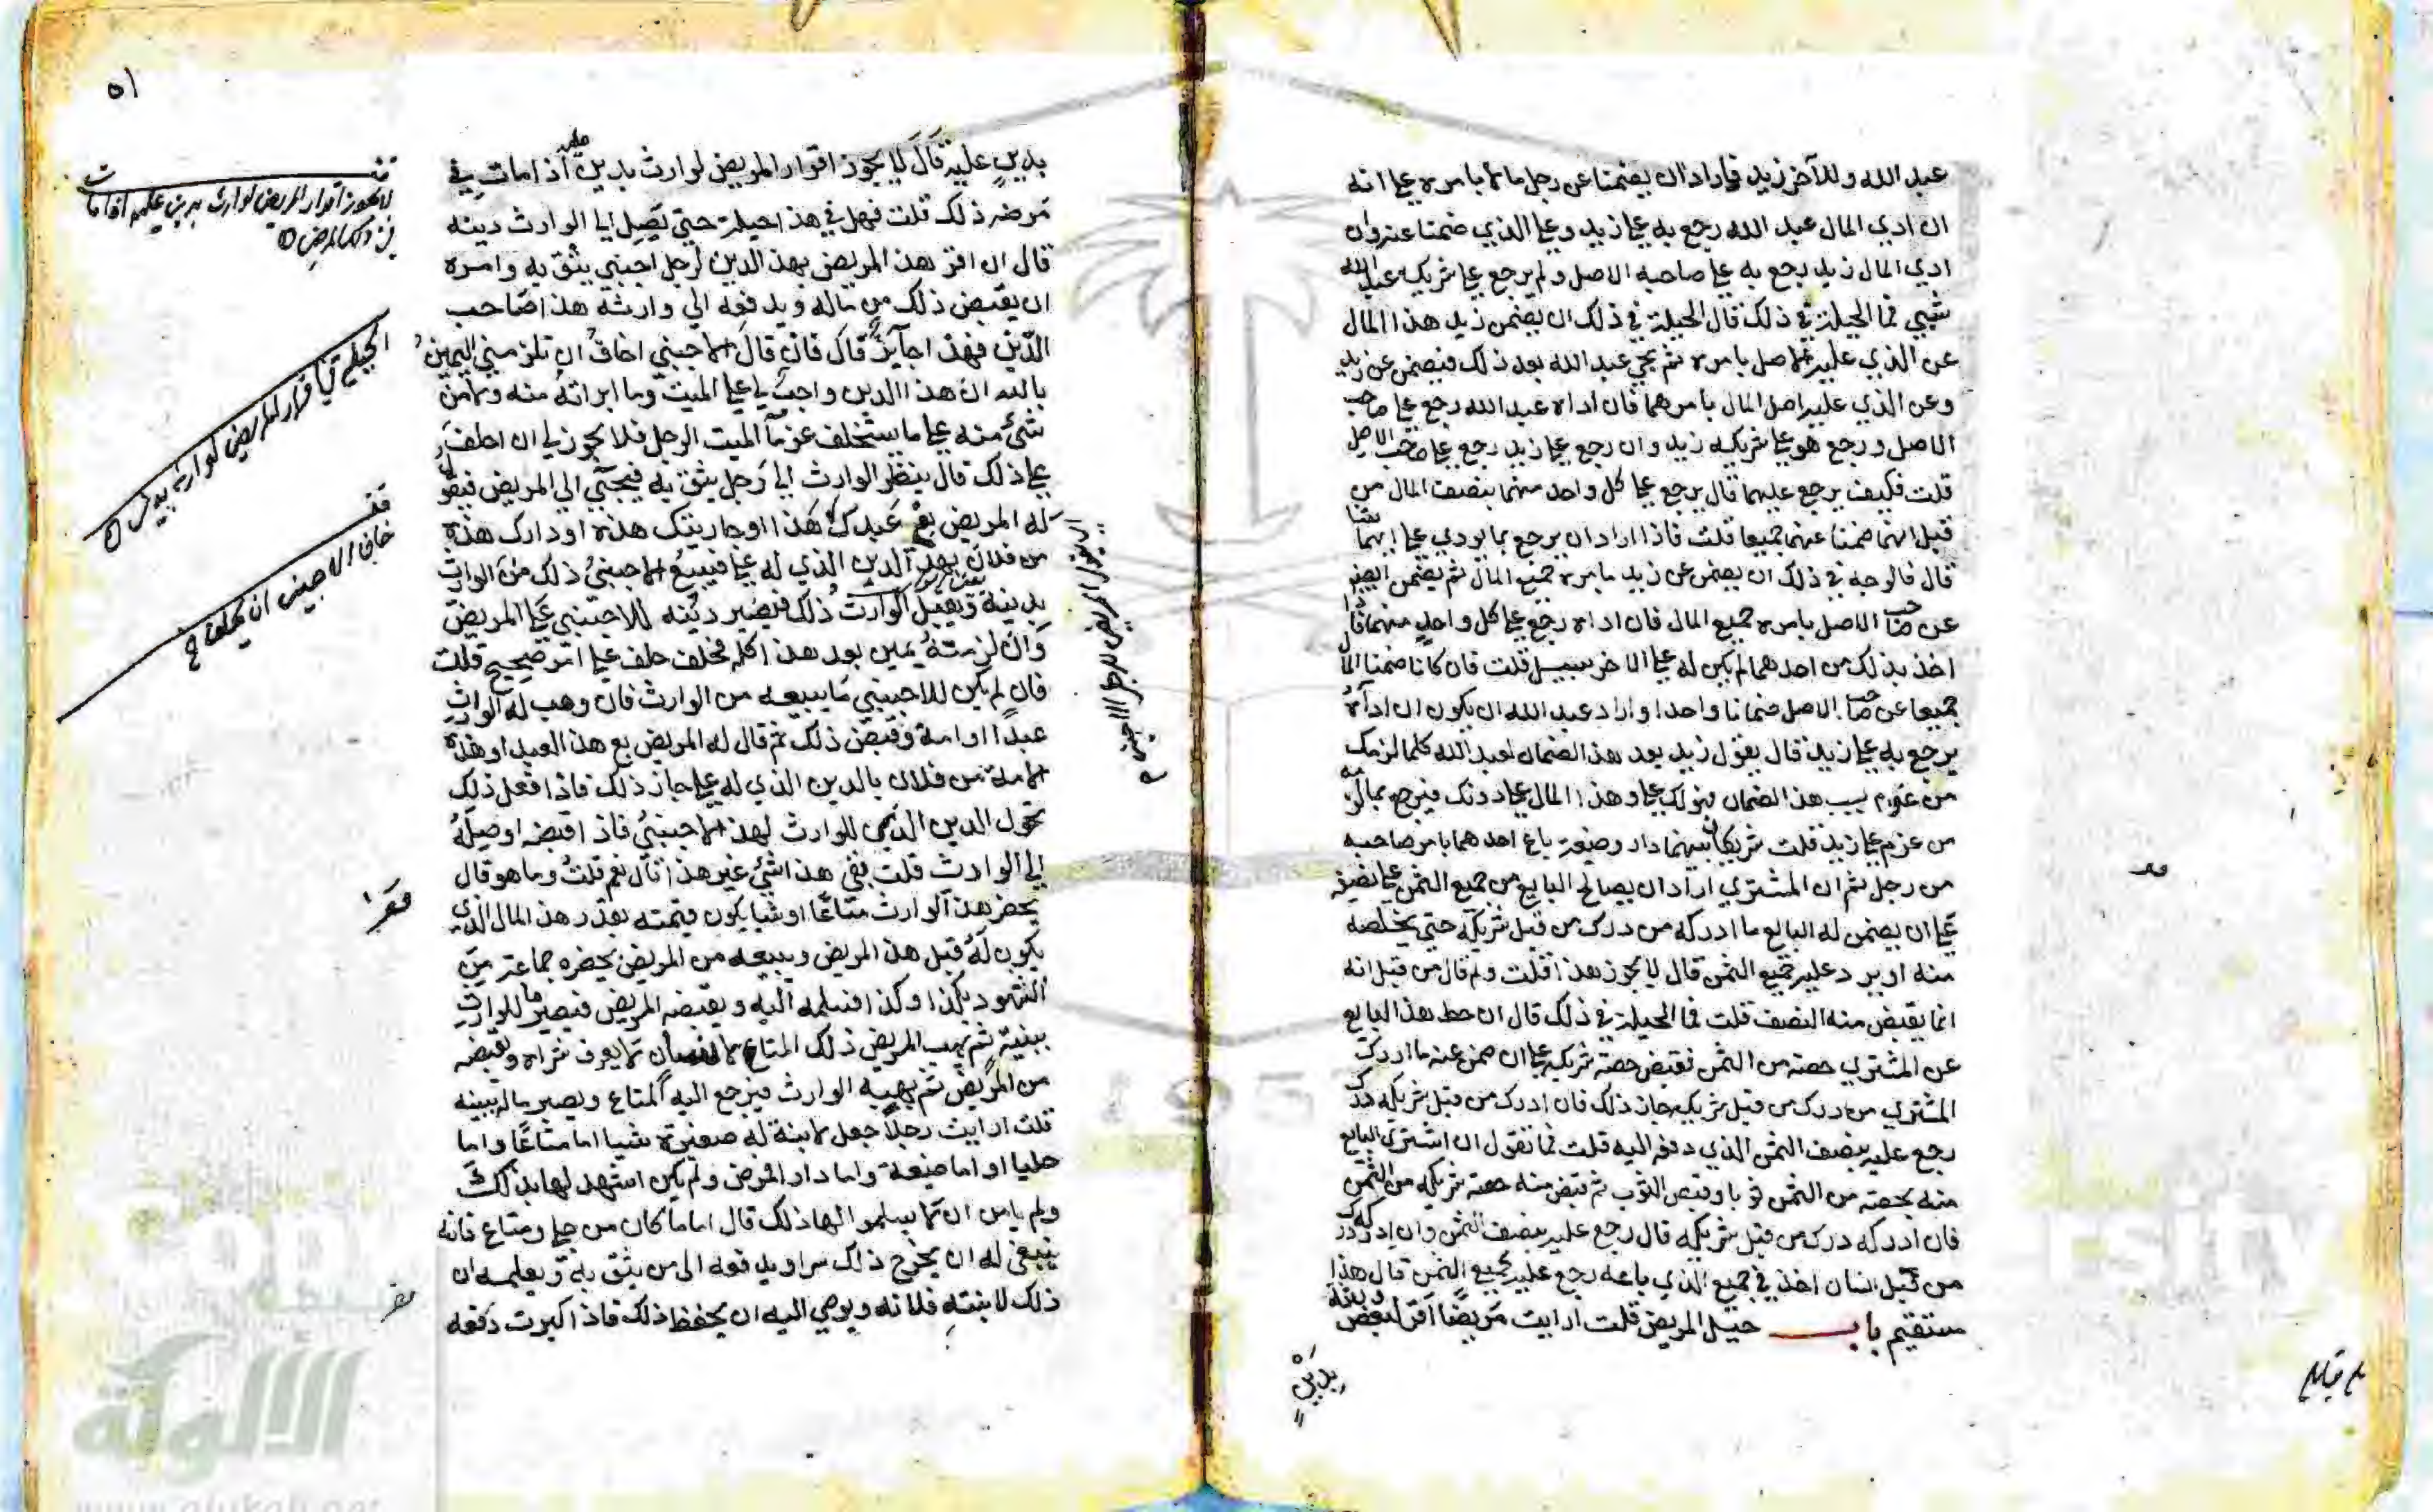 عبد الله وللآخر زيد فاراد ان يضمنا عن رجل مالا بامره على انه
ان ادي المال عبد الله رجع به على زيد وعلى الذي ضمنا عنه وان
ادي المال زيد رجع به على صاحبه الاصل ولم يرجع على شريكه عبد الله
بشيي فما الحيلة في ذلك قال الحيلة في ذلك ان يضمن زيد هذا المال
عن الذي عليه الاصل بامره ثم يجي عبد الله بعد ذلك فيضمن عن زيد
وعن الذي عليه اصل المال بامرهما فان اداه عبد الله رجع على صاحب
الاصل ورجع هو على شريكه زيد وان رجع على زيد رجع على صاحب الاصل
قلت فكيف يرجع عليهما قال يرجع على كل واحد منهما بنصف المال من
قبل انهما ضمنا عنهما جميعا قلت فاذا اراد ان يرجع بما يودي على ايهما شا
قال فالوجه في ذلك ان يضمن عن زيد بامره جميع المال ثم يضمن ايضا
عن صاحب الاصل بامره جميع المال فان اداه رجع على كل واحد منهما فاذا
اخذ بذلك من احدهما لم يكن له على الاخر سبيل قلت فان كانا ضمنا المال
جميعا عن صاحب الاصل ضمانا واحدا واراد عبد الله ان يكون ان اداه
يرجع به على زيد قال يقول زيد بعد هذا الضمان لعبد الله كلما لزمك
من غرم بسبب هذا الضمان فهو لك علي وهذا المال علي دونك فيرجع بما لزمه
من غرم على زيد قلت شريكان بينهما دار وضيعة باع احدهما بامر صاحبه
من رجل ثم ان المشتري اراد ان يصالح البايع من جميع الثمن على نصفه
على ان يضمن له البايع ما ادركه من درك من قبل شريكه حتى يخلصه
منه او يرد عليه جميع الثمن قال لا يجوز هذا قلت ولم قال من قبل انه
انما يقبض منه النصف قلت فما الحيلة في ذلك قال ان حط هذا البايع
عن المشتري حصته من الثمن وقبض حصة شريكه على ان ضمن عنه ما ادرك
المشتري من درك من قبل شريكه جاز ذلك فان ادرك من قبل شريكه درك
رجع عليه بنصف الثمن الذي دفع اليه قلت فما تقول ان اشتري البايع
منه بحصته من الثمن ثوبا وقبض الثوب ثم قبض منه حصة شريكه من الثمن
فان ادركه درك من قبل شريكه قال رجع عليه بنصف الثمن وان ادركه درك
من قبل انسان اخذ في جميع الذي باعه رجع عليه بجميع الثمن قال هذا
مستقيم باب حيل المريض قلت ارايت مريضا اقر لبعض ورثته
بدين
بلغ مقابله
٥١
بدين عليه قال لا يجوز اقرار المريض لوارث بدين عليه اذا مات في
مرضه ذلك قلت فهل في هذا حيلة حتي يصل الي الوارث دينه
قال ان اقر هذا المريض بهذا الدين لرجل اجنبي يثق به وامره
ان يقبض ذلك من ماله ويدفعه الي وارثه هذا صاحب
الدين فهذا جايز قال فان قال الاجنبي اخاف ان تلزمني اليمين
بالله ان هذا الدين واجب لي على الميت وما ابراته منه ولا من
شئ منه على ما يستخلف غرما الميت الرجل فلا يجوز لي ان احلف
على ذلك قال ينظر الوارث الي رجل يثق به فيجئ الي المريض فيقول
له المريض بع عبدك هذا او جاريتك هذه او دارك هذه
من فلان بهذا الدين الذي له علي فيبيع الاجنبي ذلك من الوارث
بدينه ويقبل الوارث ذلك فيصير دينه للاجنبي على المريض
وان لزمته يمين بعد هذا كله فحلف حلف على امر صحيح قلت
فان لم يكن للاجنبي ما يبيعه من الوارث فان وهب له الوارث
عبدا او امة وقبض ذلك ثم قال له المريض بع هذا العبد او هذه
الامة من فلان بالدين الذي له علي جاز ذلك فاذا فعل ذلك
تحول الدين الذي للوارث لهذا الاجنبي فاذا قبضه اوصله
الي الوارث قلت ففي هذا شئ غير هذا قال نعم قلت وما هو قال
يحضر هذا الوارث متاعا او شيا يكون قيمته بقدر هذا المال الذي
يكون له قبل هذا المريض ويبيعه من المريض بحضرة جماعة من
الشهود بكذا وكذا فيسلمه اليه ويقبضه المريض فيصير مال للوارث
ببينة ثم يهب المريض ذلك المتاع لانسان لا يعرف شراه ويقبضه
من المريض ثم يهبه الوارث فيرجع اليه المتاع ويصير ماله ببينه
قلت ارايت رجلا جعل لابنة له صغيرة شيا اما متاعا واما
حليا او اما ضيعة واما دارا فمرض ولم يكن اشهد لها بذلك
ولم يامن ان لا يسلموا لها ذلك قال اما ما كان من حلي ومتاع فانه
ينبغي له ان يخرج ذلك سرا ويدفعه الى من يثق به ويعلمه ان
ذلك لابنته فلانه ويوصي اليه ان يحفظ ذلك فاذا كبرت دفعه
لا يجوز اقرار المريض لوارث بدين عليه اذا مات
في ذلك المرض
الحيلة في اقرار المريض لوارثه بدين
خاف الاجنبي ان يحلف
الألوكة
www.alukah.net